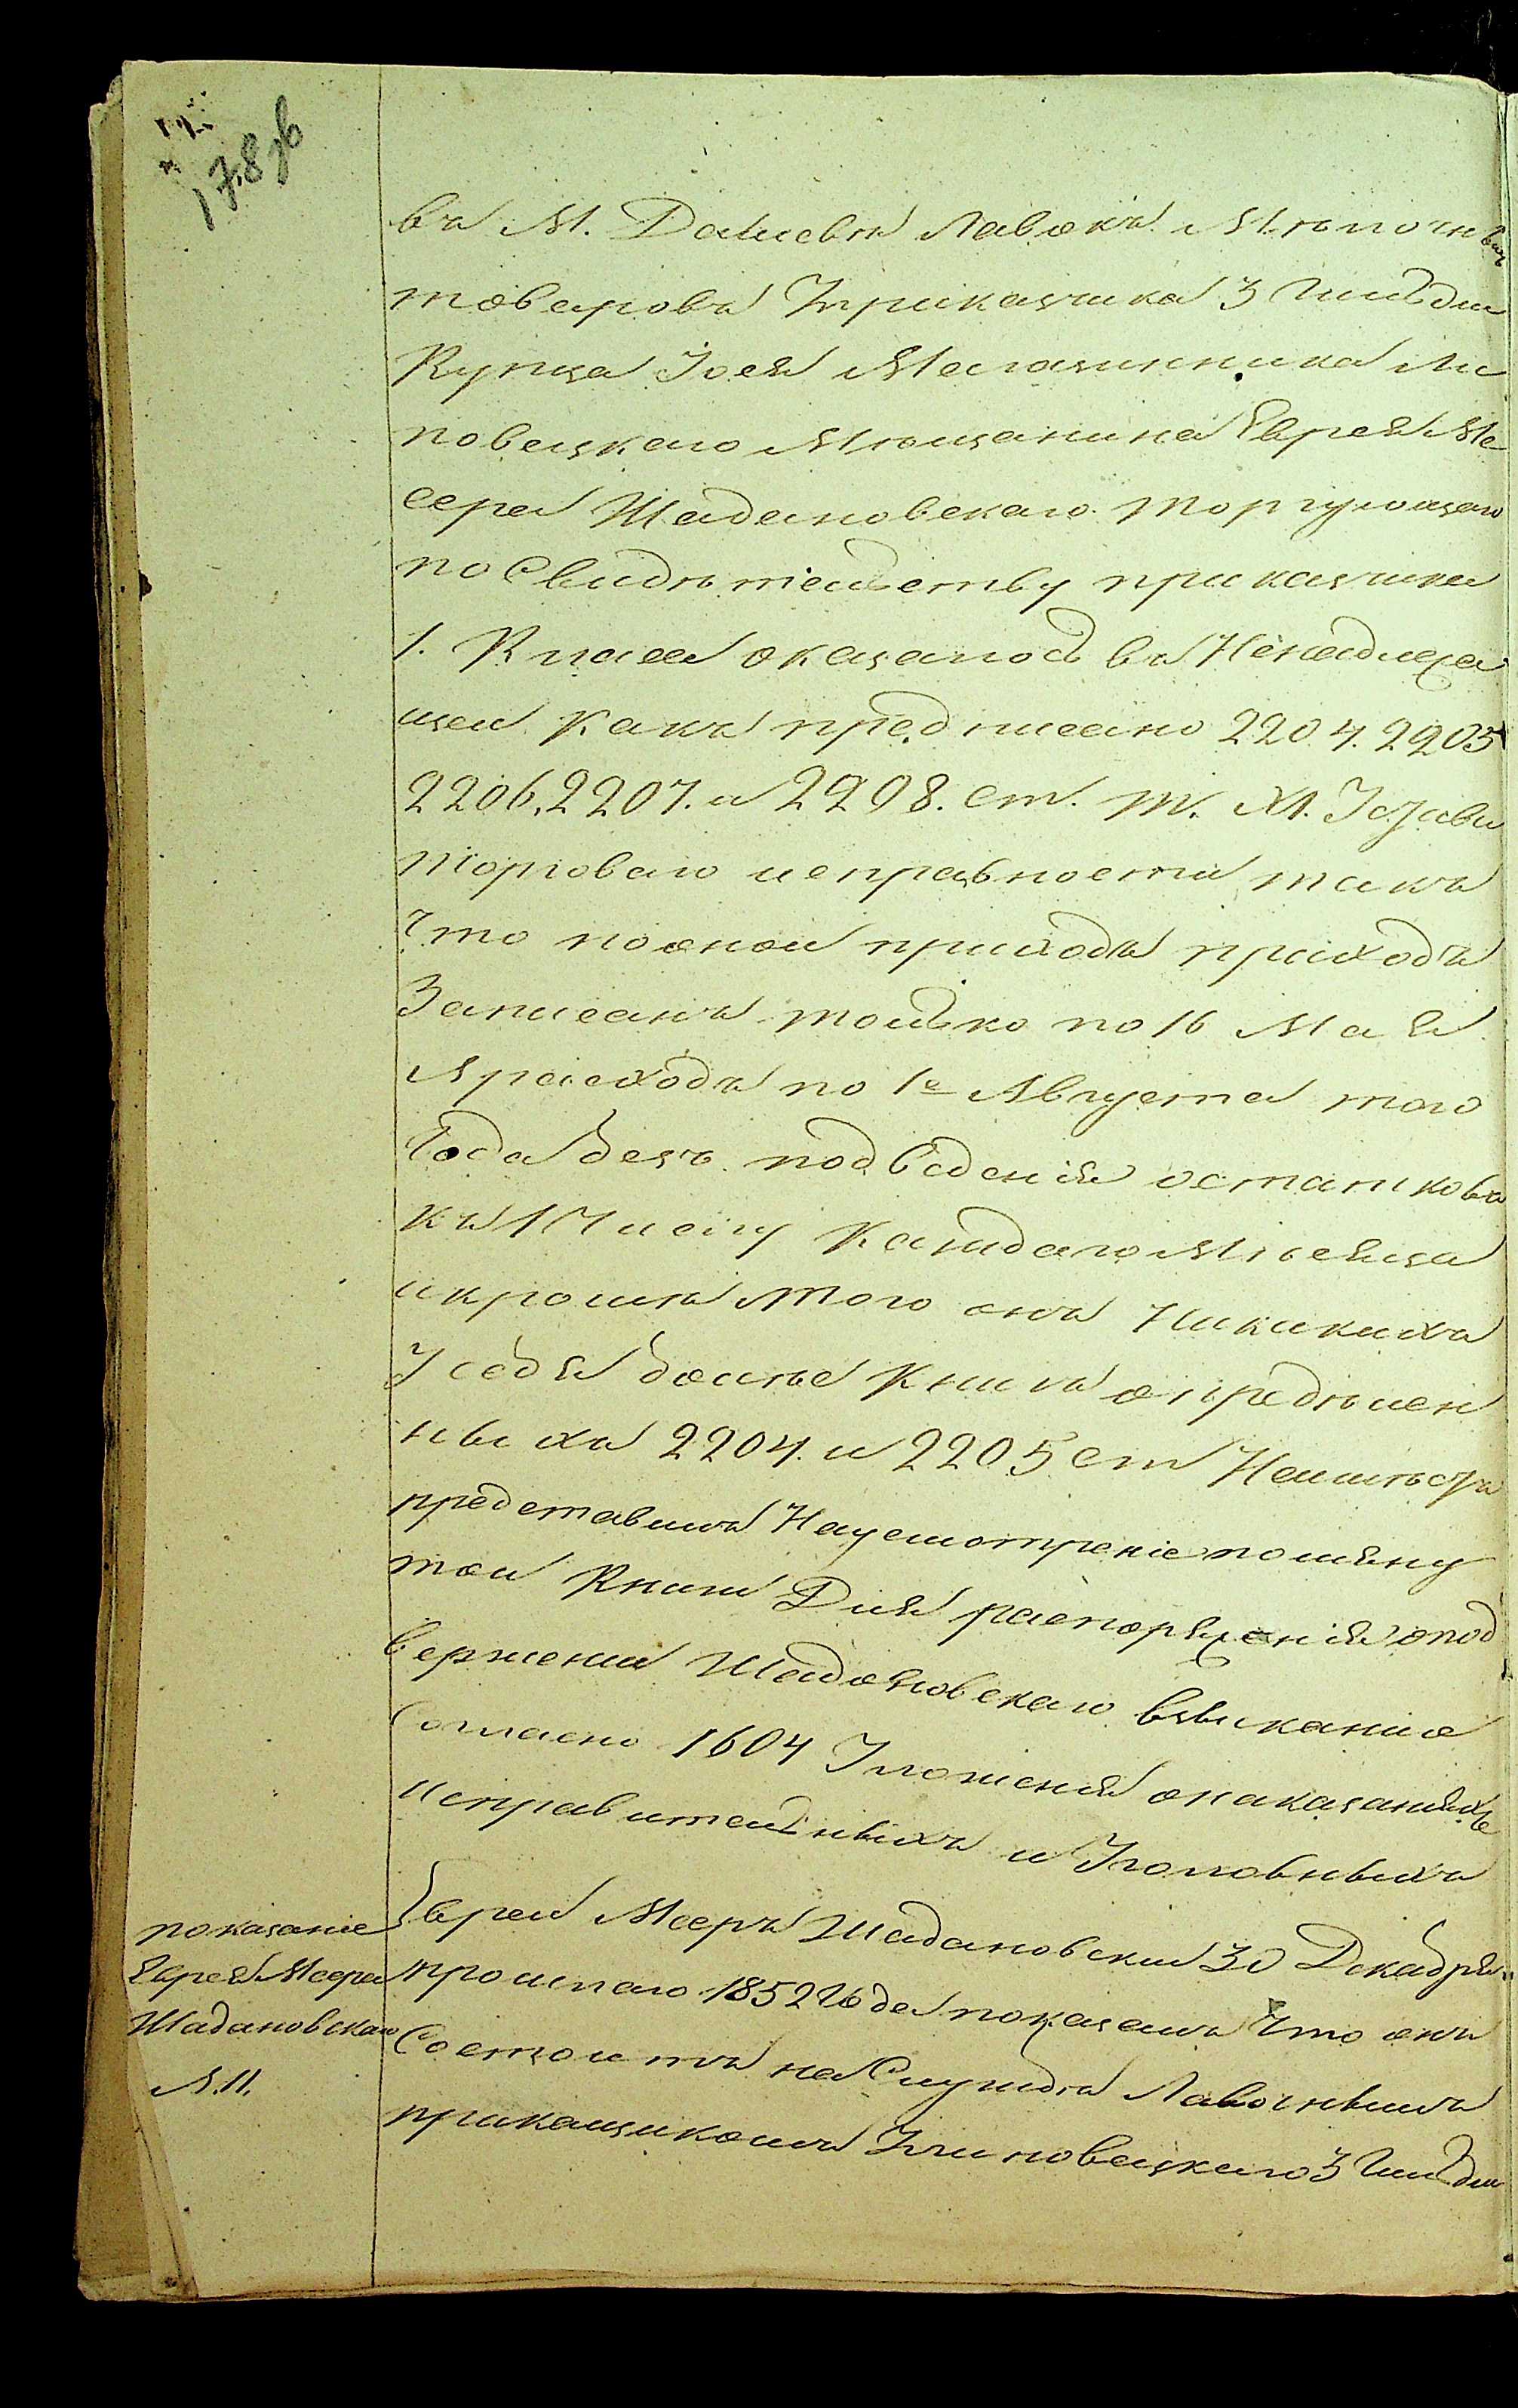 178 зв
въ М. Дашевѣ Лавокъ Мѣлочныхъ
товаровъ Прикащика 3 Гильдіи
Купца Іося Магазинника Ли
повецкаго Мѣщанина Еврея Ме
ера Шадановскаго торгующаго
по Свидѣтельству прикащика
1. Класса оказалось въ Ненадлежа
щей какъ предписано 2204. 2205
2206, 2207. и 2208. ст. т. XI. Устава
торговаго исправности такъ
Что по оной приходъ приходъ
Записанъ только по 16 Мая
А расходъ по 1е Августа того
Года безъ подведенія остатковъ
къ 1 Числу Каждаго Мѣсяца
и кромѣ того онъ Никакихъ
У себя болѣе Книгъ опредѣлен
ныхъ 2204. и 2205 ст Неимѣетъ
представилъ На усмотреніе помяну
той Книги Для распоряженія опод
верженіи Шадановскаго взысканію
Согласно 1604 Уложенія онаказаніяхъ
Исправительныхъ и Уголовныхъ
показаніе
Еврея Меера
Шадановскаго
Л. 11.
Еврей Мееръ Шадановскій 30 Декабря
прошлаго 1852 Года показалъ Что онъ
Состоитъ на Службѣ Лавочнымъ
прикащикомъ Улиповецкаго 3 Гильдіи